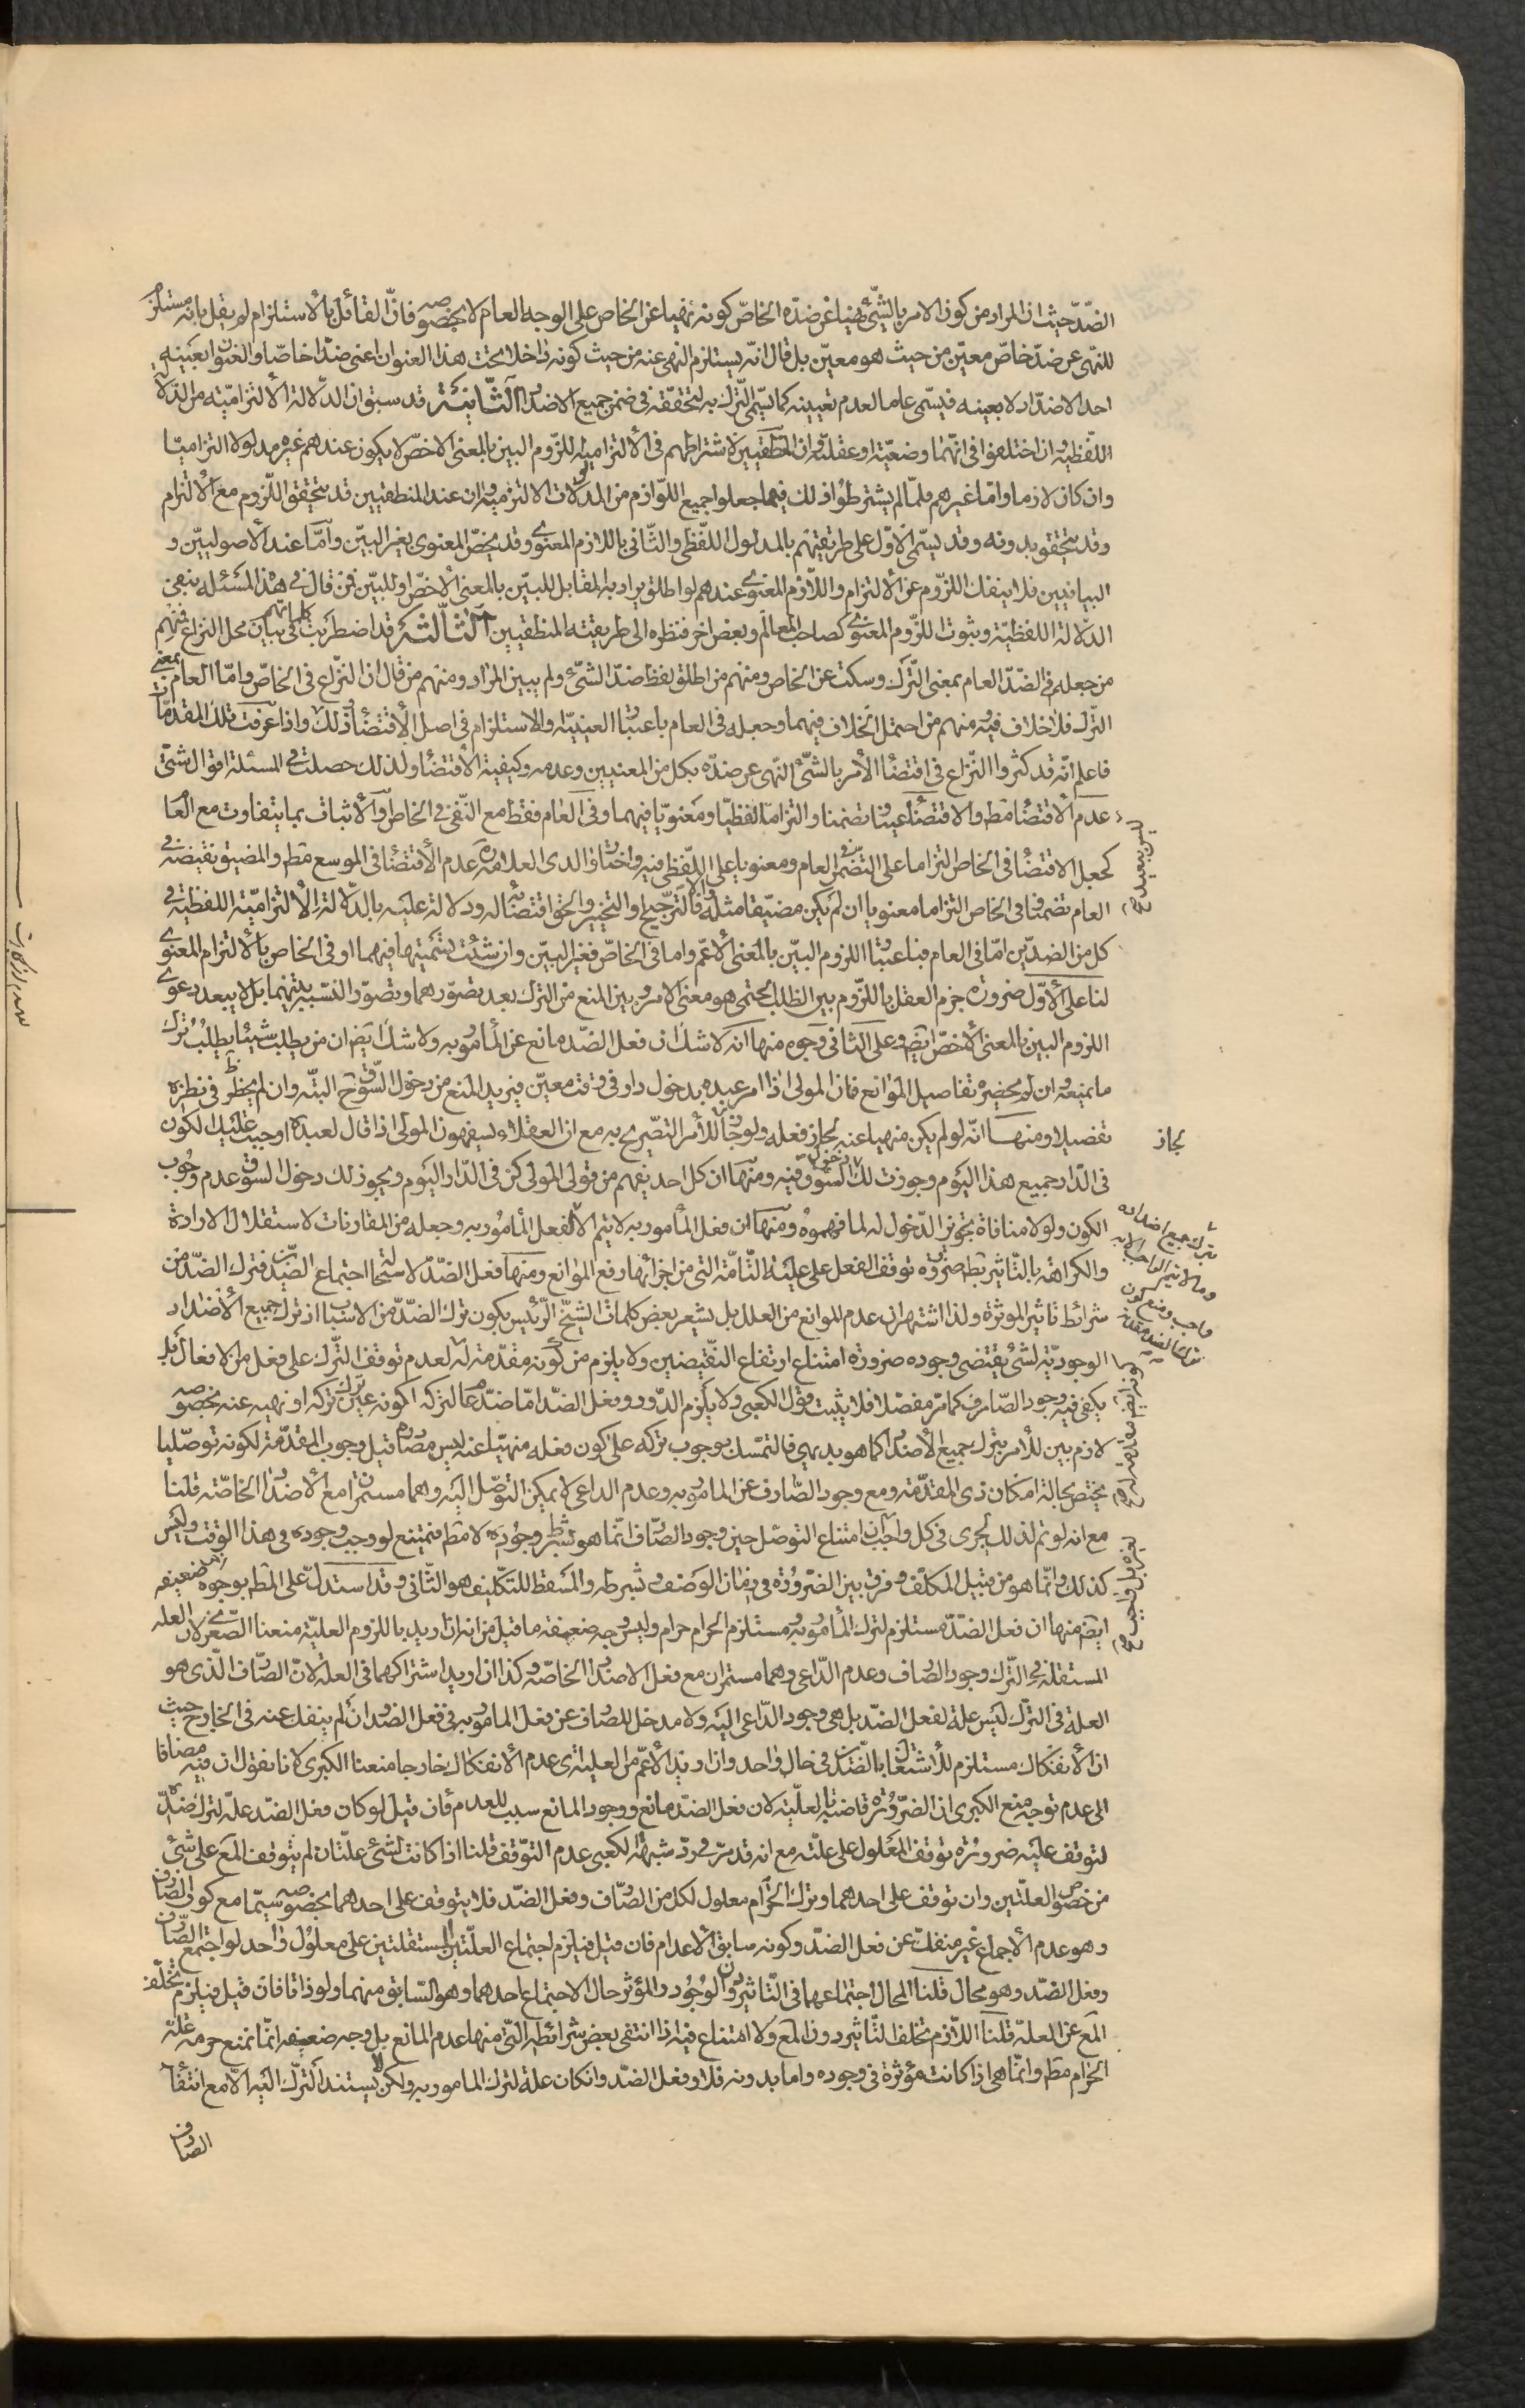 الضدّ حيث ان المراد من كون الامر بالشّئ نهيا عن ضدّه الخاصّ كونه نهيا عن الخاص على الوجه العام لا بخصوصه فانّ القائل بالاستلزام لم يقل بانه مستلزم
للنهى عن ضدّ خاصّ معيّن من حيث هو معيّن بل قال انّه يستلزم النهى عنه من حيث كونه داخلا تحت هذا العنوان اعنى ضدّا خاصّا والعنوان بعينه
احد الاضداد لا بعينه فيسمّى عاما لعدم تعيينه كما يسمّى الترك به لتحققه فى ضمن جميع الاضداد الثّانية قد سبق ان الدّلالة الالتزاميّة من الدلالة
اللّفظيّة وان اختلفوا فى انّهما وضعيّة او عقليّة وان المنطقيين لاشتراطهم فى الالتزاميّة للزّوم البين بالمعنى الاخصّ لا يكون عندهم غيره مدلولا التزاميّا
وان كان لازما وامّا غيرهم فلمّا لم يشترطوا ذلك فيها جعلوا جميع اللّوازم من المدلولات الالتزميّة وان عند المنطقيين قد يتحقق اللّزوم مع الالتزام
وقد يتحقق بدونه وقد يسمّى الاوّل على طريقتهم بالمدلول اللّفظى والثّانى باللازم المعنوى وقد يخصّ المعنوى بغير البيّن وامّا عند الاصوليين و
البيانيين فلا ينفك اللزّوم عن الالتزام واللّازم المعنوى عندهم لو اطلق يراد به المقابل للبيّن بالمعنى الاخصّ او للبيّن فمن قال فى هذا المسئله بنفى
الدّلالة اللفظيّة وبثوت للزّوم المعنوى كصاحب المعالم وبعض اخر فنظره الى طريقته المنطقيين الثالثة قد اضطربت كلماتهم فى بيان محل النزاع فمنهم
من جعله فى الضدّ العام بمعنى التّرك وسكت عن الخاص ومنهم من اطلق لفظ ضدّ الشئ ولم يبين المراد ومنهم من قال ان النزّاع فى الخاصّ وامّا العام بمعنى
التّرك فلا خلاف فيه ومنهم من احتمل الخلاف فيهما وجعله فى العام باعتبار العينيّة والاستلزام فى اصل الاقتضاء ذلك واذا عرفت تلك المقدمّات
فاعلم انّه قد كثروا النّزاع فى اقتضاء الامر بالشئ النّهى عن ضدّه بكل من المعنيين وعدمه وكيفية الاقتضاء ولذلك حصلت فى المسئلة اقوال شتّى
عدم الاقتضاء مطه والاقتضاء عينا وتضمنا والتزاما لفظيّا ومعنويّا فيهما وفى العام فقط مع النّفى فى الخاص والاثبات بما يتفاوت مع العام
كجعل الاقتضاء فى الخاص التزاما على التضمّن فى العام ومعنويا على اللّفظى فيه واختار والدى العلامة ره عدم الاقتضاء فى الموسع مطه والمضيق نقيضه فى
العام تضمنا وفى الخاص التزاما معنويا ان لم يكن مضيّقا مثله والا فالترجيح او التخيير والحق اقتضائه له ودلالة عليه بالدلالة الالتزاميّة اللفظية فى
كل من الضدّين امّا فى العام فباعتبار اللزوم البيّن بالمعنى الاعمّ واما فى الخاصّ فغير البيّن وان شئت تسميتها فيهما او فى الخاص بالالتزام المعنوى
لنا على الاوّل ضرورة جزم العقل باللزّوم بين الطلب الحتمى هو معنى الامر وبين المنع من الترك بعد تصوّرهما وتصوّر النسبه بينهما بل لا يبعد دعوى
اللزوم البين بالمعنى الاخصّ ايضا وعلى الثانى وجوه منها انه لا شك ان فعل الضدّ مانع عن المأمور به ولا شك ايضا ان من يطلب شيئا يطلب ترك
ما يمنعه وان لم يحضره تفاصيل الموانع فان المولى اذا امر عبده بدخول دار فى وقت معيّن فيريد المنع من دخول السّوق ح البتّه وان لم يخطر فى نظره
تفصيلا ومنها انّه لو لم يكن منهيا عنه لجاز فعله ولو جاز للأمر التصّريح به مع ان العقلاء يسفهون المولى اذا قال لعبده اوجبت عليك الكون
فى الدّار جميع هذا اليوم وجوزت لك دخول السّوق فيه ومنها ان كل احد يفهم من قول المولى كن فى الدّار اليوم ويجوز لك دخول السّوق عدم وجوب
الكون ولو لا منافاة تجويز الدّخول له لما فهموه ومنها ان فعل المأمور به لا يتم الا لفعل المأمور به وجعله من المقارنات لاستقلال الارادة
والكراهة بالتّاثير بط ضرورة توقف الفعل على علته التّامّة التى من اجزائها رفع الموانع ومنها فعل الضدّ لاستحالة اجتماع الضدّين فترك الضدّ من
شرائط تاثير الموثرة ولذا اشتهر ان عدم الموانع من العلل بل يشعر بعض كلمات الشيخ الرّئيس بكون ترك الضدّ من الاسباب اذ ترك جميع الاضداد
الوجوديّة لشئ يقتضى وجوده ضرورة امتناع ارتفاع النّقيضين ولا يلزم من كونه مقدّمة له لعدم توقف التّرك على فعل من الافعال بل
يكفى فيه وجود الصّارف كما مرّ مفصّلا فلا يثبت قول الكعبى ولا يلزم الدّور وفعل الضدّ امّا ضدّ عام لتركه اكونه عين ترك تركه او نهيه عنه بخصوصه
لازم بين للأمر بترك جميع الاضداد كما هو بديهى فالتمسّك بوجوب تركه على كون فعله منهيّا عنه ليس مصادره قيل وجوب المقدّمة لكونه توصّليا
يختص بحالة امكان ذى المقدّمة ومع وجود الصّارف عن المامور به وعدم الداعى لا يمكن التوصّل اليه وهما مستمران مع الاضداد الخاصّة قلنا
مع انه لو تم لذلك لجرى فى كل واجب ان امتناع التوصّل حين وجود الصّارف انّما هو بشرط وجوده لا مطه فيمتنع لو وجب وجوده فى هذا الوقت وليس
كذلك وانّما هو من قبيل المكلف وفرق بين الضّرورة فى زمان الوصف وشبرطه والمسقط للتكليف هو الثّانى وقد استدلّ على المطه بوجوه اخر ضعيفه
ايضا منها ان فعل الضدّ مستلزم لترك المأمور به ومستلزم الحرام حرام وليس وجه ضعفه ما قيل من انه ان اريد باللزوم العليّة منعنا الصّغرى لان العله
المستقلة فى التّرك وجود الصارف وعدم الدّاعى وهما مستمران مع فعل الاضداد الخاصّة وكذا ان اريد اشتراكهما فى العلة لانّ الصّارف الّذى هو
العلة فى التّرك ليس علة لفعل الضدّ بل هى وجود الدّاعى اليه ولا مدخل للصارف عن فعل المامور به فى فعل الضد وان لم ينفك عنه فى الخارج حيث
ان الانفكاك مستلزم للأشتغال بالضّدين فى حال واحد وان اريد الاعمّ من العلية اى عدم الانفكاك خارجا منعنا الكبرى لانا نقول ان فيه مضافا
الى عدم توجه منع الكبرى اذ الضرّورة قاضية بالعلّية لان فعل الضدّ مانع ووجود المانع سبب للعدم فان قيل لو كان فعل الضدّ علة لترك ضدّه
لتوقف عليه ضرورة توقف المعلول على علّته مع انه قد مرّ فى ردّ شبهة الكعبى عدم التوّقف قلنا اذا كانت لشئ علّتان لم يتوقف المع على شئ
من خصوص العلّتين وان توقف على احدهما وترك الحرام معلول لكل من الصّارف وفعل الضدّ فلا يتوقف على احدهما بخصوصه سيّما مع كون الصّارف
وهو عدم الاجماع غير منفك عن فعل الضدّ وكونه سابق الاعدام فان قيل فيلزم اجتماع العلّتين المستقلتين على معلول واحد لو اجتمع الصّارف
وفعل الضدّ وهو محال قلنا المحال اجتماعهما فى التّاثير دون الوجود والمؤثر حال الاجتماع احدهما وهو السّابق منهما ولو ذاتا فان قيل فيلزم تخلّف
المع عن العلّة قلنا اللّازم تخلف التّاثير دون المع ولا امتناع فيه اذا انتفى بعض شرائطه التى منها عدم المانع بل وجه ضعفه انّما نمنع حرمه علّة
الحرام مطه وانّما هى اذا كانت مؤثرة فى وجوده واما بدونه فلا وفعل الضدّ وان كان علة لترك المامور به ولكن لا يستند التّرك اليه الا مع انتفاء
الصارف
ليس ببعيد
بجاز
بترك جميع اضداده